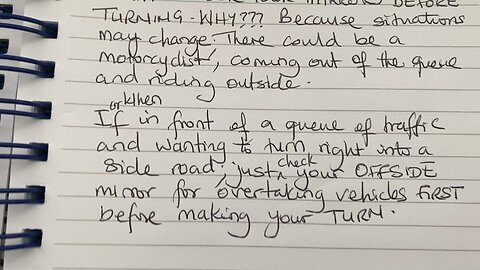 TURNING. WHY??? Because situations
may change. There could be a
motorcyclist, coming out of the queue
and riding outside.
or When
If in front of a queue of traffic
and wanting to turn right into a
side road, just check your OFFSIDE
mirror for overtaking vehicles FIRST
before making your TURN.